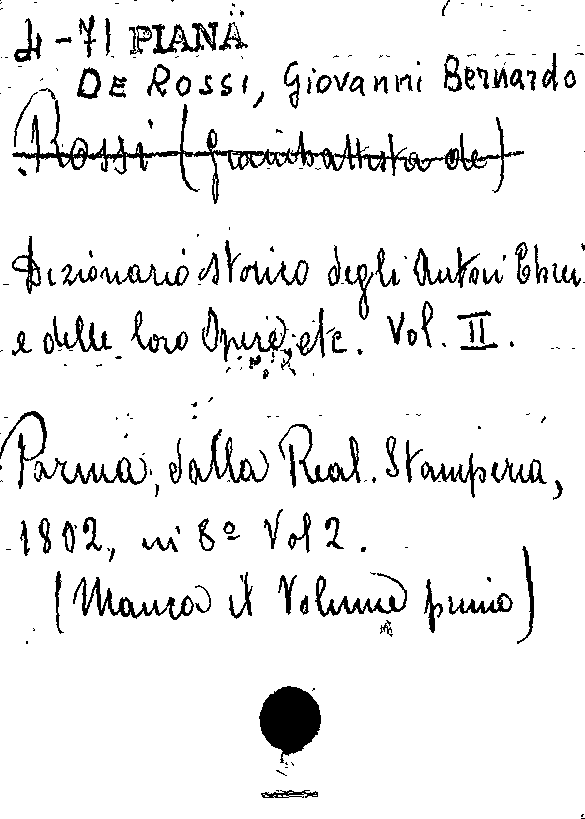 4-71 PIANA
DE ROSSI, Giovanni Bernardo
Rossi (Giambattista de)
Dizionario storico degli Autori Ebrei
e delle loro Opere, etc. Vol. II.
Parma, dalla Real. Stamperia,
1802, in 8º Vol 2.
(Manca il Volume primo)